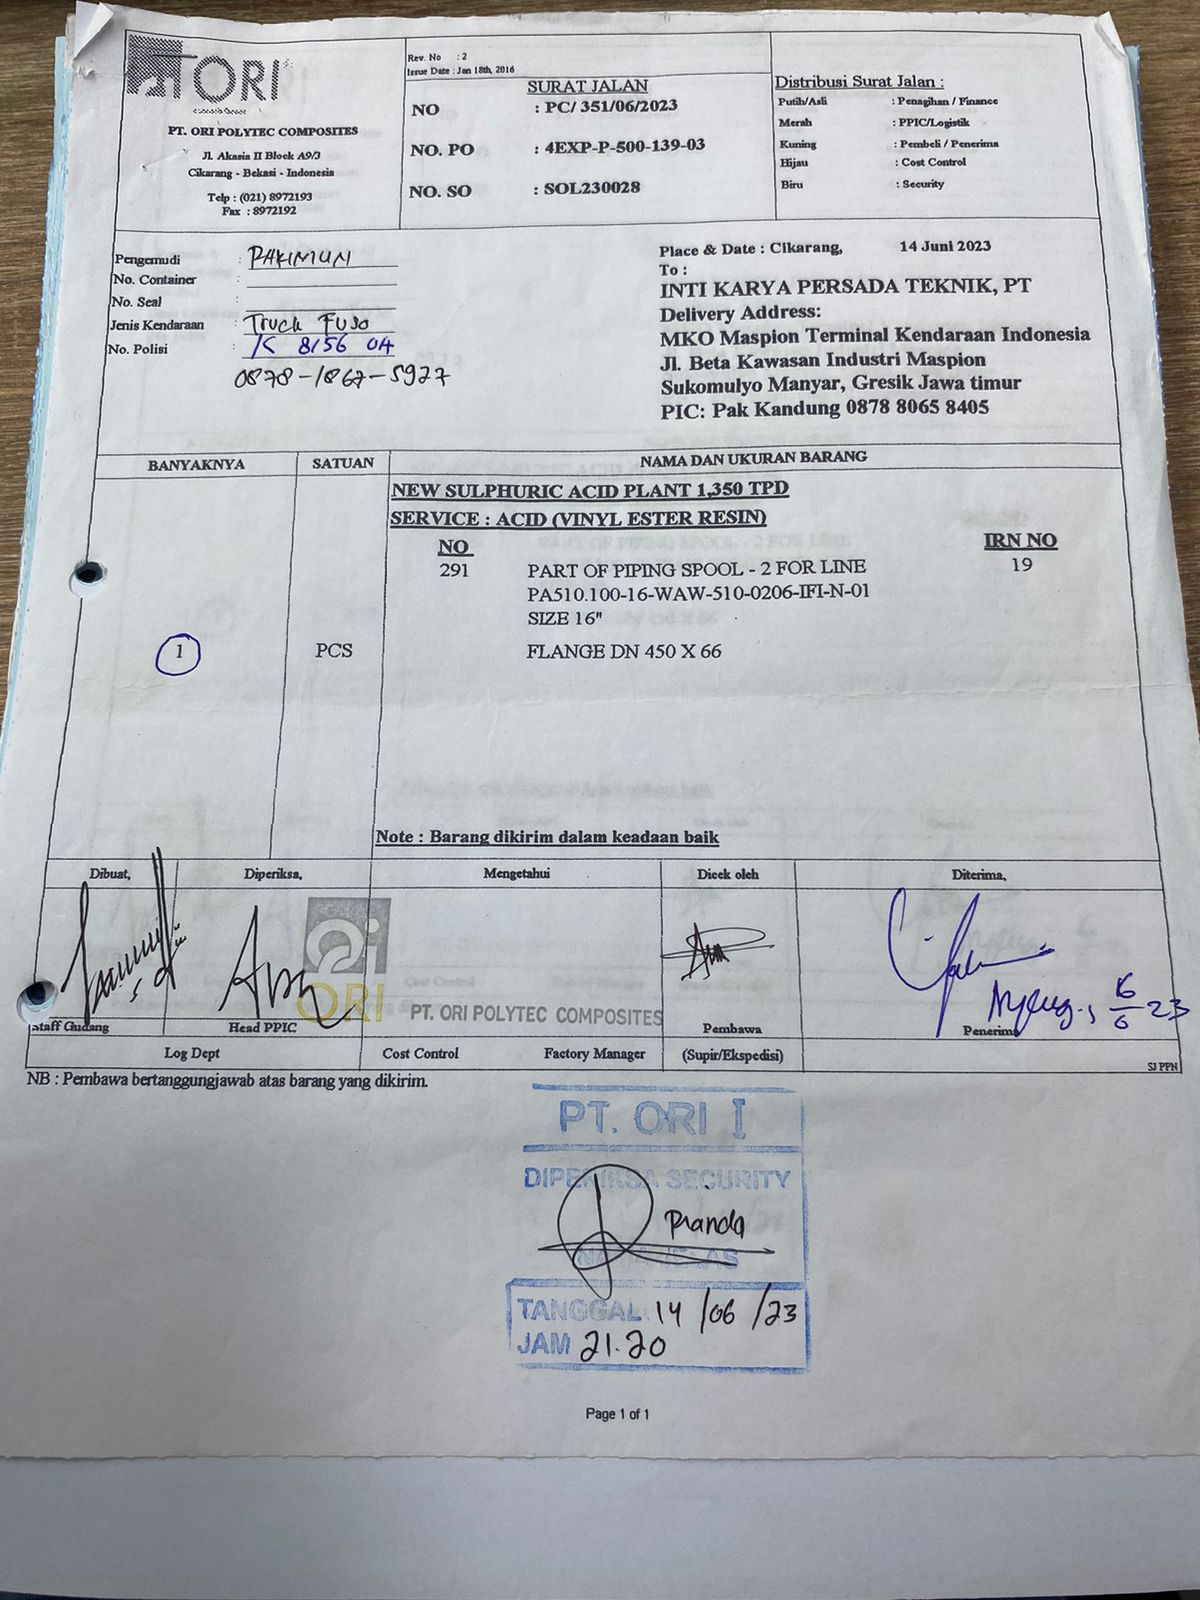 ORI
PT. ORI POLYTEC COMPOSITES
Jl. Akasia II Block A9/3
Cikarang - Bekasi - Indonesia
Telp : (021) 8972193
Fax : 8972192
Rev. No : 2
Issue Date : Jan 18th, 2016
SURAT JALAN
NO : PC/ 351/06/2023
NO. PO : 4EXP-P-500-139-03
NO. SO : SOL230028
Distribusi Surat Jalan :
Putih/Asli : Penagihan / Finance
Merah : PPIC/Logistik
Kuning : Pembeli / Penerima
Hijau : Cost Control
Biru : Security
Pengemudi : PAKIMUN
No. Container :
No. Seal :
Jenis Kendaraan : Truck FUSO
No. Polisi : K 8156 OA
0878-1867-5927
Place & Date : Cikarang, 14 Juni 2023
To :
INTI KARYA PERSADA TEKNIK, PT
Delivery Address:
MKO Maspion Terminal Kendaraan Indonesia
Jl. Beta Kawasan Industri Maspion
Sukomulyo Manyar, Gresik Jawa timur
PIC: Pak Kandung 0878 8065 8405
BANYAKNYA SATUAN NAMA DAN UKURAN BARANG
NEW SULPHURIC ACID PLANT 1,350 TPD
SERVICE : ACID (VINYL ESTER RESIN)
NO IRN NO
291 PART OF PIPING SPOOL - 2 FOR LINE 19
PA510.100-16-WAW-510-0206-IFI-N-01
SIZE 16"
1 PCS FLANGE DN 450 X 66
Note : Barang dikirim dalam keadaan baik
Dibuat, Diperiksa, Mengetahui Dicek oleh Diterima,
ORI PT. ORI POLYTEC COMPOSITES
6/6 23
Staff Gudang Head PPIC Pembawa Penerima
Log Dept Cost Control Factory Manager (Supir/Ekspedisi)
SJ PPN
NB : Pembawa bertanggungjawab atas barang yang dikirim.
PT. ORI I
DIPERIKSA SECURITY
Pranda
TANGGAL 14 /06 /23
JAM 21.20
Page 1 of 1